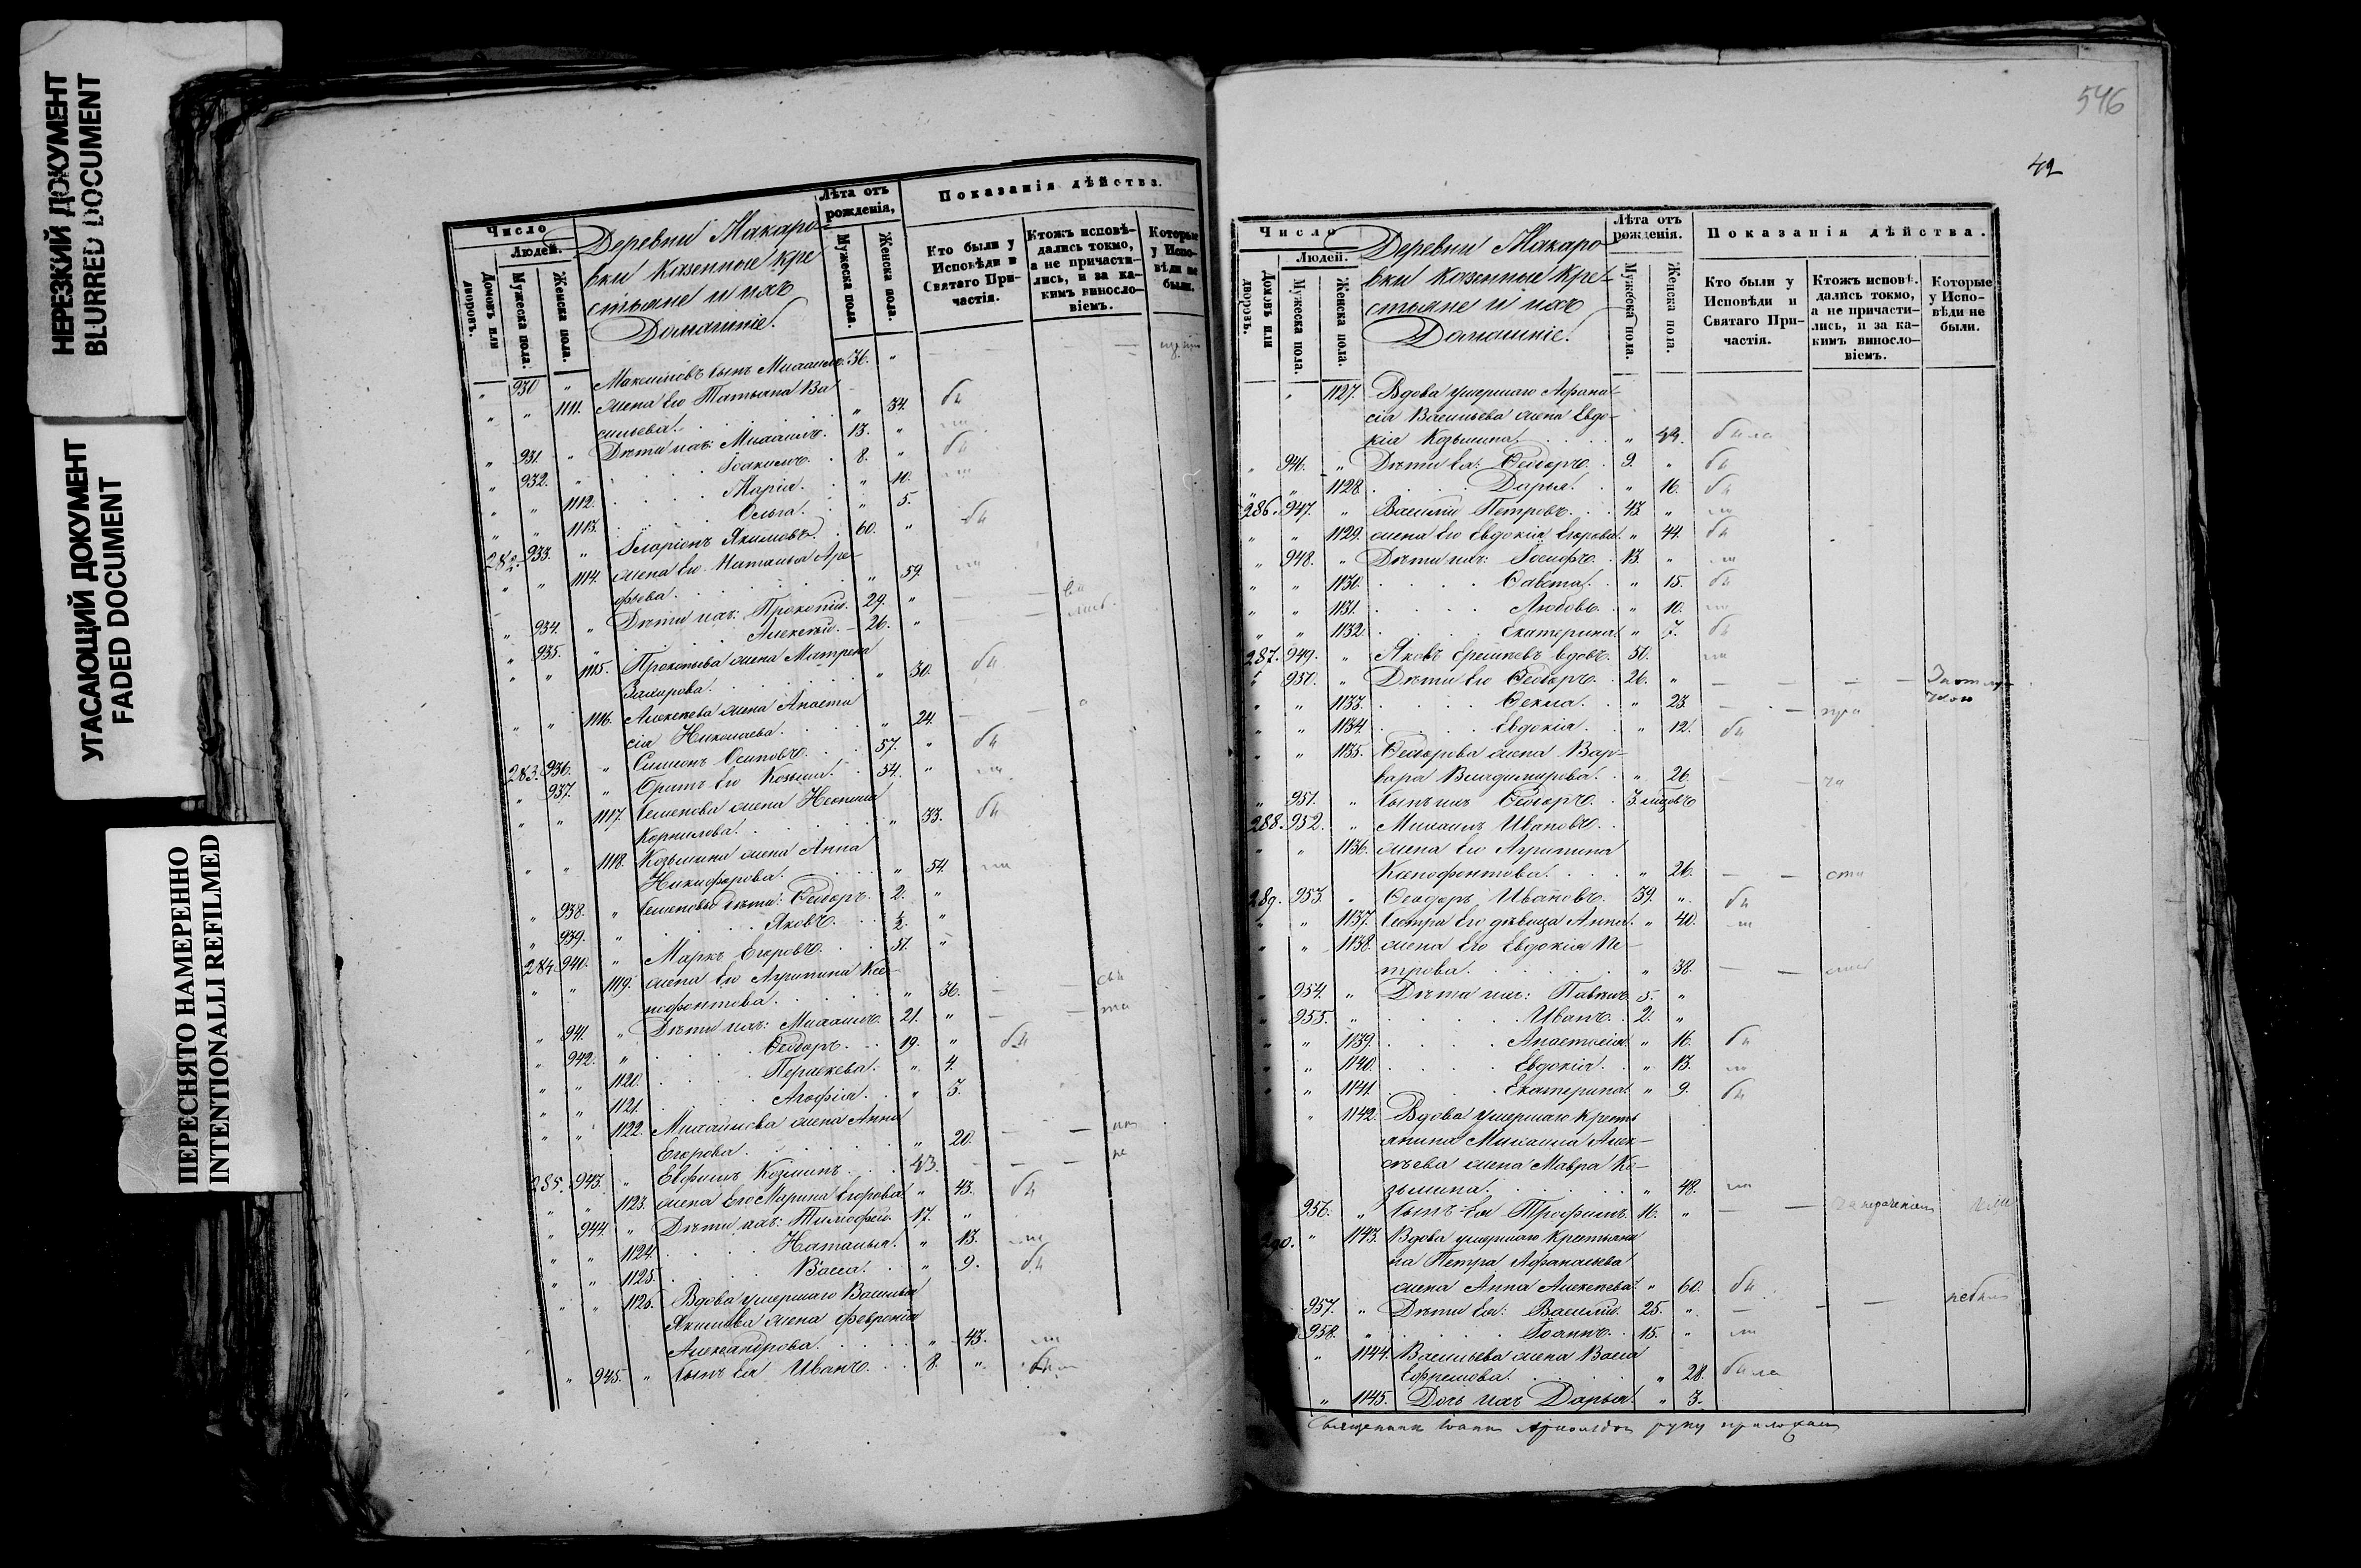 НЕРЕЗКИЙ ДОКУМЕНТ
BLURRED DOCUMENT
УГАСАЮЩИЙ ДОКУМЕНТ
FADED DOCUMENT
ПЕРЕСНЯТО НАМЕРЕННО
INTENTIONALLI REFILMED
Число
Людей.
Домовъ или дворовъ.
Мужеска пола.
Женска пола.
Деревни Макаро-
вки казенные кре
стьяне и ихъ
Домашніе.
Лѣта отъ
рожденія,
Мужеска пола.
Женска пола.
Показанія дѣйства.
Кто были у
Исповѣди и
Святаго При-
частія.
Ктожъ исповѣ-
дались токмо,
а не причасти-
лись, и за ка-
кимъ винесло-
віемъ.
Которые
у Испо-
вѣди не
были.
" 930 " Максимовъ сынъ Михаилъ. 36. "
" " 1111. жена его Татьяна Ва
сильева. " 34.
" 931. " Дѣти ихъ: Михаилъ. 13. "
" 932. " Іоакимъ. 8. "
" " 1112. Марія. " 10.
" " 1113. Ольга. " 5.
282. 933. " Иларіонъ Якимовъ. 60. "
" 1114. жена его Наталья Аре-
фьева. " 59.
" 934. " Дѣти ихъ: Прокопій. 29. "
" 935. " Алексѣй. 26. "
" " 1115. Прокопьева жена Матрена
Захарова. " 30.
" " 1116. Алексѣева жена Анаста
сія Николаева. " 24.
283. 936. " Симеонъ Осиповъ. 57. "
" 937. " Братъ его Козьма. 54. "
" " 1117. Семенова жена
Корнилова. " 33.
" " 1118. Козьмина жена Анна
Никифорова. " 54.
" 938. " Семеновы дѣти: Ѳедоръ. 2. "
" 939. " Яковъ. "
284. 940. " Маркъ Егоровъ. "
" " 1119. жена его Агрипина Ксе-
нофонтова. " 36.
" 941. " Дѣти ихъ: Михаилъ. 21. "
" 942. " Ѳедоръ. 19. "
" " 1120. Параскева. " 4.
" " 1121. Агафія. " 3.
" " 1122. Михайлова жена Анна
Егорова. " 20.
285. 943. " Ефимъ Козминъ. 43.
" " 1123. жена его Марина Егорова. " 43.
" 944. " Дѣти ихъ: Тимофей. 17. "
" " 1124. Наталья. " 13.
" " 1125. Васса. " 9.
" " 1126. Вдова умершаго Василья
Якимова жена Февронія
Александрова. " 43.
" 945. " Сынъ ея Иванъ. 8. "
546
42
Число
Людей.
Домовъ или дворовъ.
Мужеска пола.
Женска пола.
Деревни Макаро-
вки казенные кре-
стьяне и ихъ
Домашніе.
Лѣта отъ
рожденія.
Мужеска пола.
Женска пола.
Показанія дѣйства.
Кто были у
Исповѣди и
Святаго При-
частія.
Ктожъ исповѣ-
дались токмо,
а не причасти-
лись, и за ка-
кимъ винесло-
віемъ.
Которые
у Испо-
вѣди не
были.
" 1127. Вдова умершаго Афана-
сія Васильева жена Евдо-
кія Козьмина. " 44. была
" 946. " Дѣти ея: Ѳедоръ. 9. "
" " 1128. Дарья. " 16.
286. 947. " Василій Петровъ. 43. "
" " 1129. жена его Евдокія Егорова. " 44.
" 948. " Дѣти ихъ: Іосифъ. 13. "
" " 1130. " 15.
" " 1131. Любовь. " 10.
" " 1132. Екатерина. " 7.
287. 949. " Яковъ вдовъ. 50.
" 950. " Дѣти его Ѳедоръ. 26. "
" " 1133. Ѳекла. " 23.
" " 1134. Евдокія. " 12.
" " 1135. Ѳедорова жена Вар-
вара Владимирова. " 26.
" 951. " Сынъ ихъ Ѳедоръ.
288. 952. " Михаилъ Ивановъ.
" " 1136. жена его Агрипина
Ксенофонтова. " 26.
289. 953. " Ѳеодоръ Ивановъ. 39. "
" " 1137. Сестра его дѣвица Анна. " 40.
" " 1138. жена его Евдокія Пе-
трова. " 38.
" 954. " Дѣти ихъ: Павелъ 5. "
" 955. " Иванъ. 2. "
" " 1139. Анастасія. " 16.
" " 1140. Евдокія. " 13.
" " 1141. Екатерина. " 9.
" 1142. Вдова умершаго кресть
янина Михаила Алек-
сѣева жена Мавра Ко-
зьмина. " 48.
956. " Сынъ ея Трофимъ. 16. "
290. " 1143. Вдова умершаго крестьяни
на Петра Афанасьева
жена Анна Алексѣева. " 60.
957. " Дѣти ея: Василій. 25. "
958. " Іоаннъ. 15. "
" 1144. Васильева жена Васса
Ефремова. " 28. была
" 1145. Дочь ихъ Дарья. " 3.
Священникъ Іоаннъ руку приложилъ